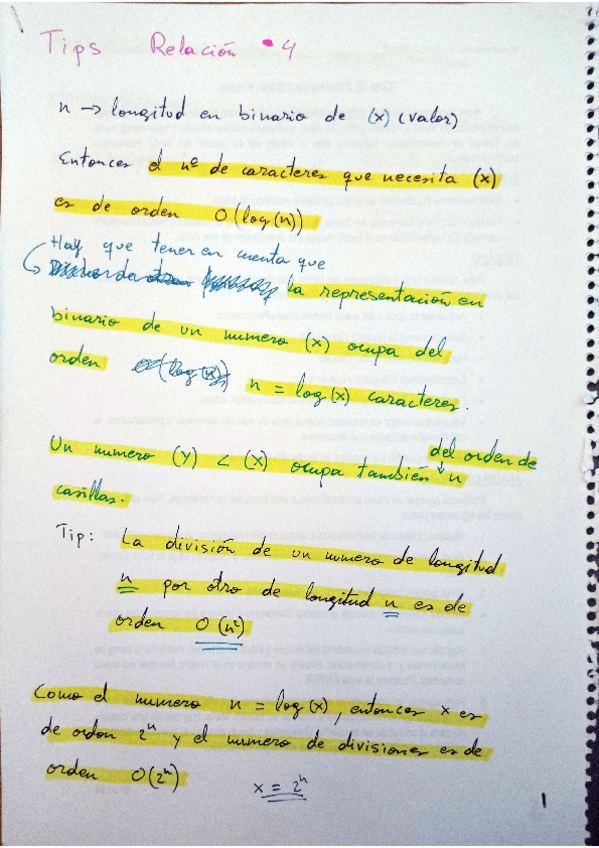 Tips Relación 4
n → longitud en binario de (x) (valor)
Entonces el nº de caracteres que necesita (x)
es de orden O(log(n))
Hay que tener en cuenta que
la representación en
binario de un numero (x) ocupa del
orden n = log(x) caracteres.
del orden de
Un numero (y) < (x) ocupa también n
casillas.
Tip: La división de un numero de longitud
n por otro de longitud n es de
orden O(n²)
Como el numero n = log(x), entonces x es
de orden 2ⁿ y el numero de divisiones es de
orden O(2ⁿ) x = 2ⁿ
1